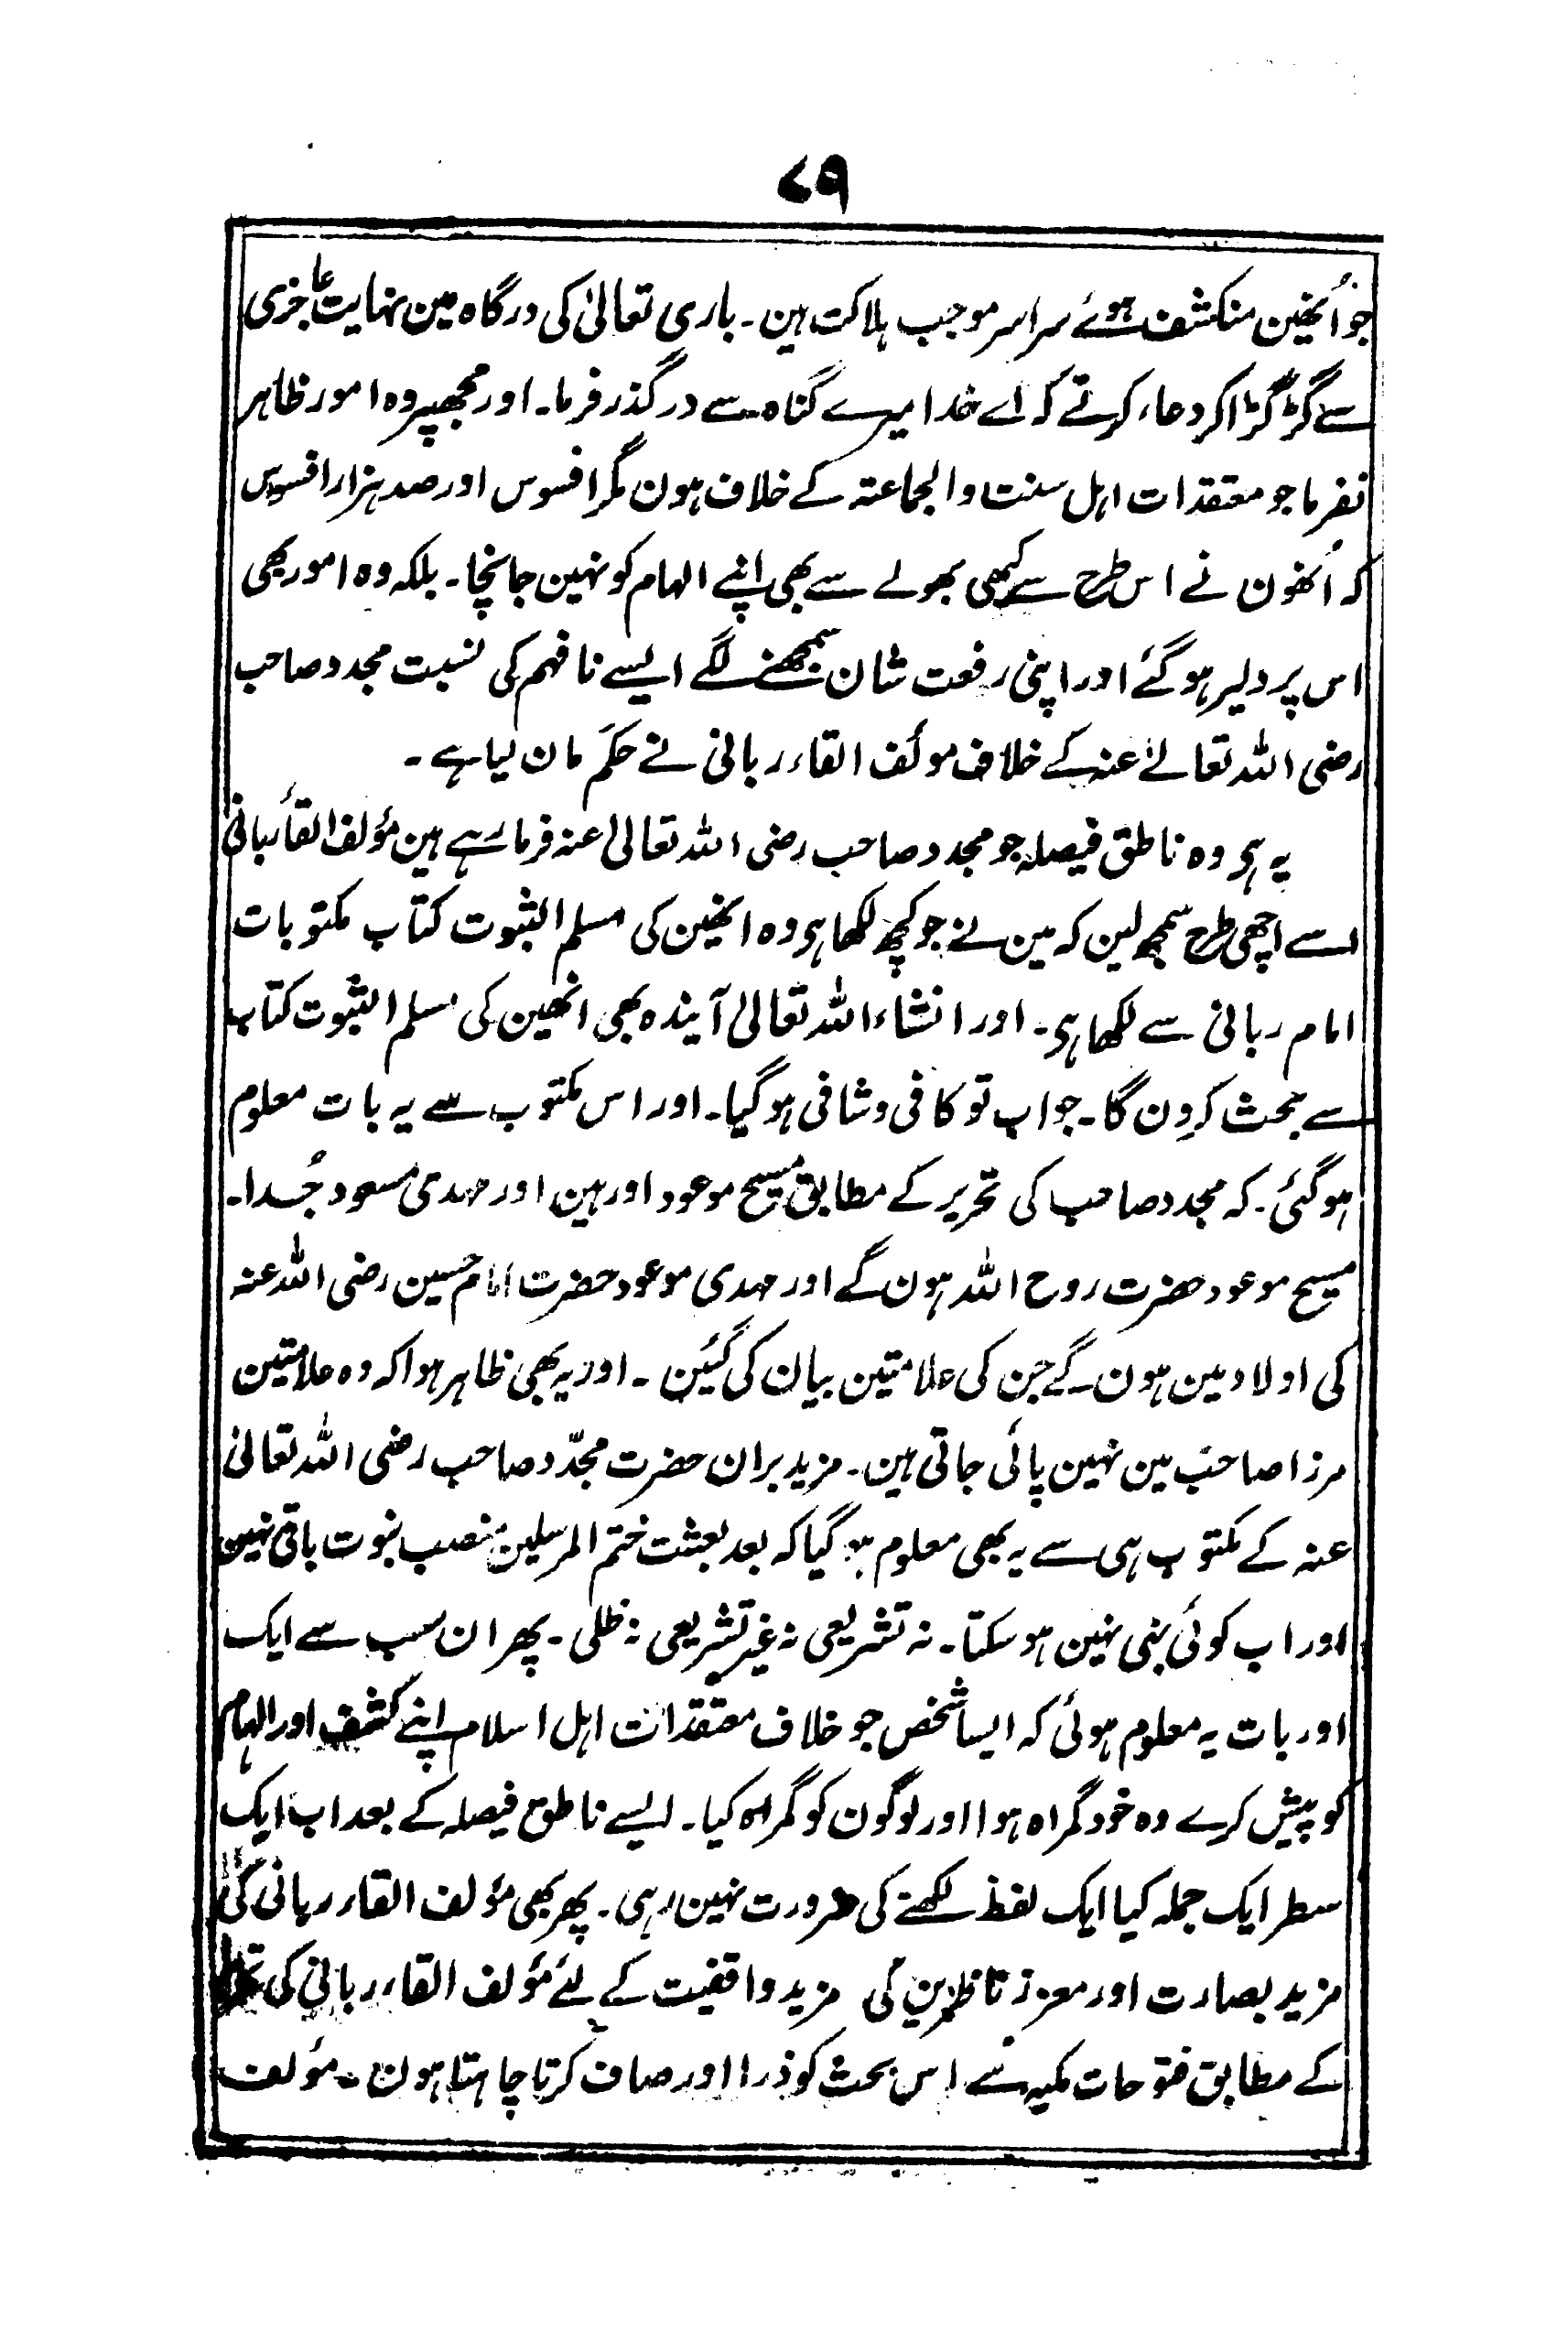 ۷۹
جو اُنھین منکشف ہوئے سراسر موجب ہلاکت ہین۔ باری تعالیٰ کی درگاہ مین نہایت عاجزی
سے گڑگڑا کر دعاء کرتے کہ اے خدا میرے گناہ سے درگذر فرما۔ اور مجھپر وہ امور ظاہر
نفرما جو معتقدات اہل سنت والجماعتہ کے خلاف ہون مگر افسوس اور صد ہزار افسوس
کہ اُنھون نے اس طرح سے کبھی بھولے سے بھی اپنے الہام کو نہین جانچا۔ بلکہ وہ امور بھی
اس پر دلیر ہوگئے اور اپنی رفعت شان سمجھنے لگے ایسے نافہم کی نسبت مجدد صاحب
رضی اللہ تعالےٰ عنہ کے خلاف موئف القاء ربانی نے حکَم مان لیا ہے۔
یہ ہی وہ ناطق فیصلہ جو مجدد صاحب رضی اللہ تعالیٰ عنہ فرما رہے ہین مؤلف القاء ربانی
اسے اچھی طرح سمجھ لین کہ مین نے جو کچھ لکھا ہی وہ انھین کی مسلم الثبوت کتاب مکتوبات
امام ربانی سے لکھا ہی۔ اور انشاء اللہ تعالیٰ آیندہ بھی انھین کی مسلم الثبوت کتاب
سے بحث کرون گا۔ جواب تو کافی وشافی ہوگیا۔ اور اس مکتوب سے یہ بات معلوم
ہوگئی۔ کہ مجدد صاحب کی تحریر کے مطابق مسیح موعود اور ہین اور مہدی مسعود جُدا۔
مسیح موعود حضرت روح اللہ ہون گے اور مہدی موعود حضرت امام حسین رضی اللہ عنہ
کی اولاد مین ہون گے جن کی علامتین بیان کی گئین۔ اور یہ بھی ظاہر ہوا کہ وہ علامتین
مرزا صاحب مین نہین پائی جاتی ہین۔ مزید بران حضرت مجدّد صاحب رضی اللہ تعالیٰ
عنہ کے مکتوب ہی سے یہ بھی معلوم ہو گیا کہ بعد بعثت ختم المرسلین منصب نبوت باقی نہین
اور اب کوئی نبی نہین ہو سکتا۔ نہ تشریعی نہ غیر تشریعی نہ ظلی۔ پھر ان سب سے ایک
اور بات یہ معلوم ہوئی کہ ایسا شخص جو خلاف معتقدات اہل اسلام اپنے کشف اور الہام
کو پیش کرے وہ خود گمراہ ہوا اور لوگون کو گمراہ کیا۔ ایسے ناطق فیصلہ کے بعد اب ایک
سطر ایک جملہ کیا ایک لفظ لکھنے کی ضرورت نہین رہی۔ پھر بھی مؤلف القاء ربانی کی
مزید بصارت اور معزز ناظرین کی مزید واقفیت کے لئے مؤلف القاء ربانی کی
کے مطابق فتوحات مکیہ سے اس بحث کو ذرا اور صاف کرتا چاہتا ہون۔ مؤلف